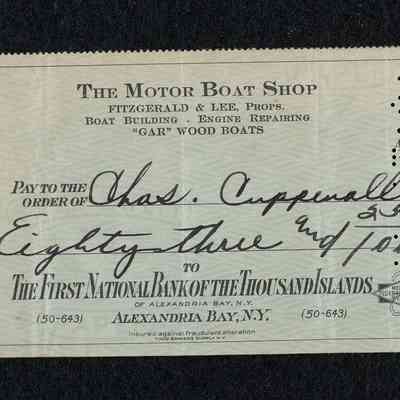 The Motor Boat Shop
Fitzgerald & Lee, Props.
Boat Building - Engine Repairing
"Gar" Wood Boats
Pay to the
order of Chas. Cuppernall
Eighty three and 25/100
TO
The First National Bank of the Thousand Islands
OF ALEXANDRIA BAY, N.Y.
(50-643) Alexandria Bay, N.Y. (50-643)
Insured against fraudulent alteration